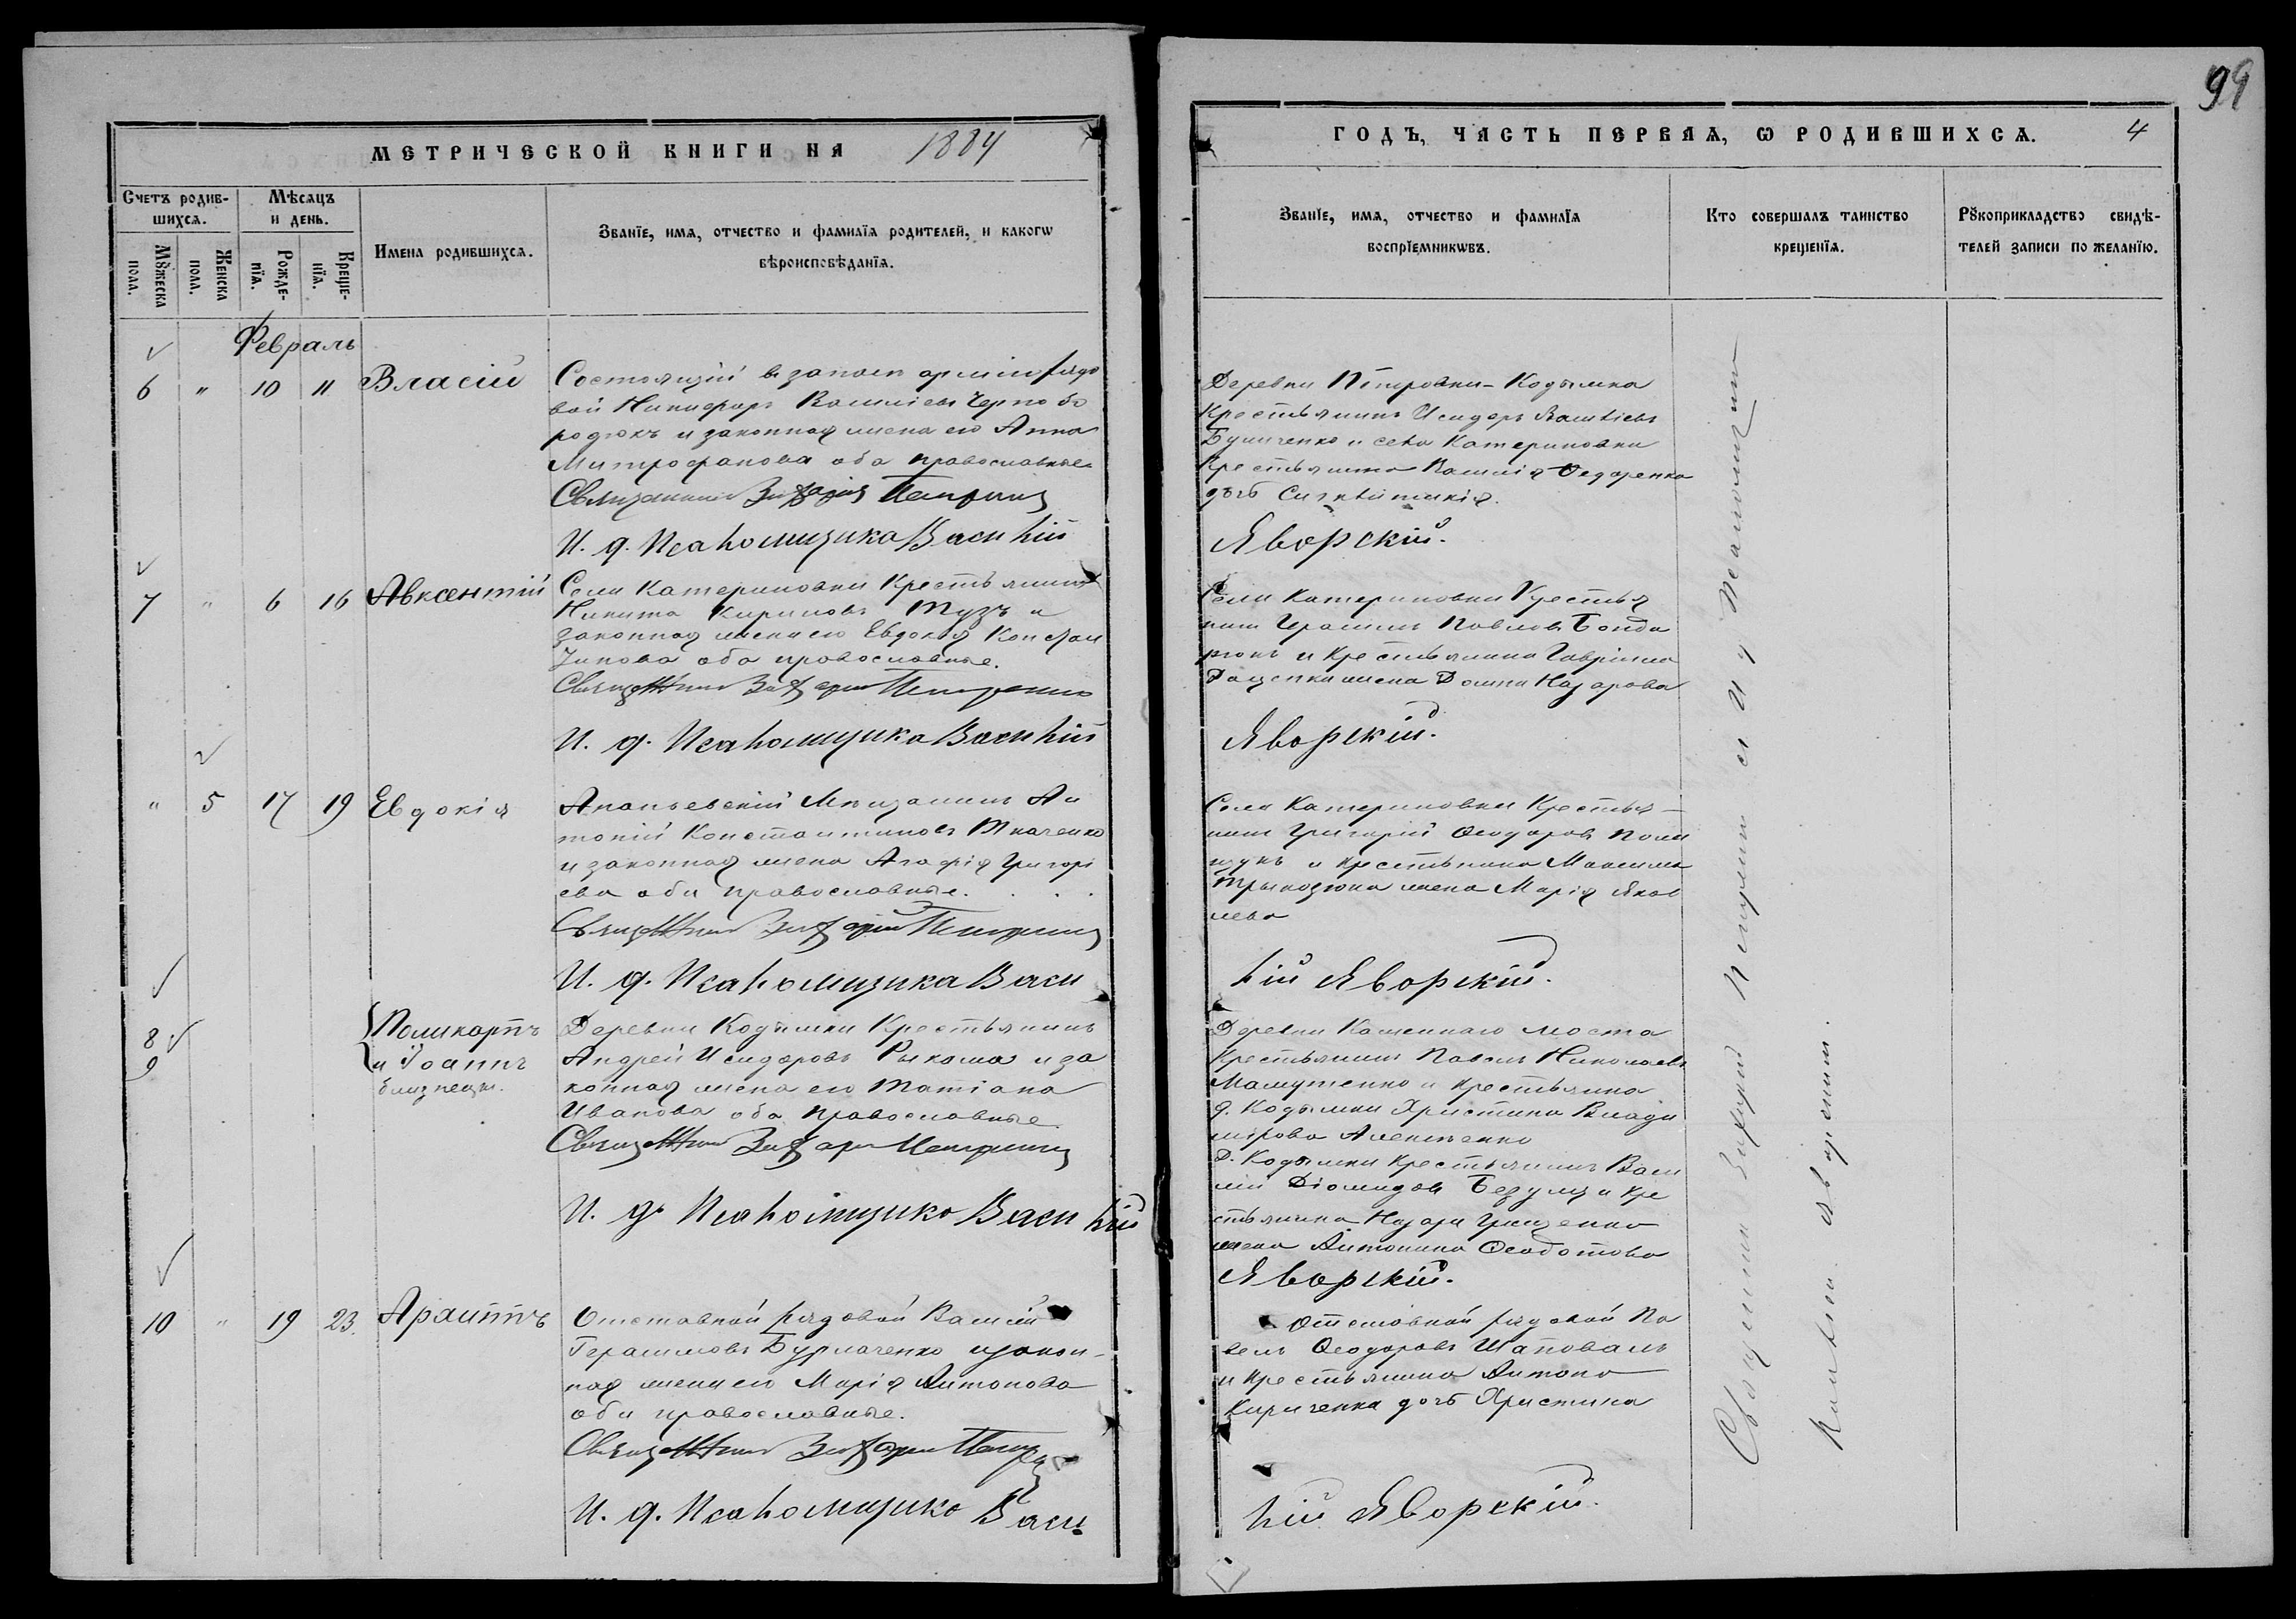 99
МЕТРИЧЕСКОЙ КНИГИ НА 1884
ГОДЪ, ЧАСТЬ ПЕРВАЯ, Ѡ РОДИВШИХСЯ. 4
Счетъ родив-
шихся.
Мѣсяцъ
и день.
Мꙋжеска
пола.
Женска
пола.
Рожде-
нїя.
Креще-
нїя.
Имена родившихся.
Званїе, имя, отчество и фамилїя родителей, и какогѡ
вѣроисповѣданїя.
Званїе, имя, отчество и фамилїя
воспрїемникѡвъ.
Кто совершалъ таинство
крещенїя.
Рꙋкоприкладство свидѣ-
телей записи по желанїю.
Февраль
6 " 10 11 Власій
Состоящій в запасѣ арміи рядо
вой Никифоръ Василіевъ Чернобо
родюкъ и законная жена его Анна
Митрофанова оба православные
Священникъ Захарія
И. д. Псаломщика Василій
Деревни Петровки-Кодымка
Крестьянинъ Исидоръ Василіевъ
и села Катериновки
Крестьянина Василія Федоренка
дочь
Яворскій.
7 " 6 16 Авксентій
Села Катериновки Крестьянинъ
Никита Кириловъ Тузъ и
законная жена его Евдокія Констан
тинова оба православные.
Священникъ Захарія
И. д. Псаломщика Василій
Села Катериновки Крестья
нинъ Герасимъ Павловъ Бонда
рюкъ и Крестьянина Гавріила
Доценка жена Домна Назарова
Яворскій.
" 5 17 19 Евдокія
Ананьевскій Мѣщанинъ Ан
тоній Константиновъ Ткаченко
и законная жена Агафія Григорі
ева оба православные.
Священникъ Захарій
И. д. Псаломщика Васи
Села Катериновки Крестья-
нинъ Григорій Ѳеодоровъ Поли
щукъ и крестьянина Максима
жена Марія Яков
лева
лій Яворскій.
8
9
Поликарпъ
и Іоаннъ
близнецы.
Деревни Кодымки Крестьянинъ
Андрей Исидоровъ и за
конная жена его Татіана
Иванова оба православные.
Священникъ Захарія
И. д. Псаломщика Василій
Деревни Каменнаго моста
Крестьянинъ Павелъ Николаевъ
и крестьянка
д. Кодымки Христина Влади
мірова
Д. Кодымки крестьянинъ Васи
лій Діомидовъ и кре
стьянина Назарія Грищенко
жена Антонина Ѳеодотова
Яворскій.
10 " 19 23. Архиппъ
Отставной рядовой Василій
Герасимовъ Бурлаченко и закон-
ная жена его Марія Антонова
оба православные.
Священникъ Захарія
И. д. Псаломщика Васи
Отставной рядовой Па
велъ Ѳеодоровъ Шаповалъ
и крестьянина Антона
Кириченка дочь Христина
лій Яворскій.
Священникъ Захарій съ И д Псаломщика
Василіемъ Яворскимъ.